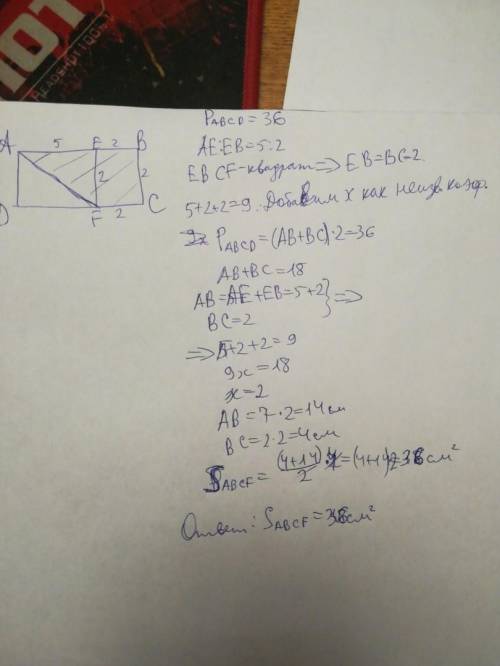 101
HEADSHOT! DON'T
P_ABCD = 36
AE:EB = 5:2
EBCF-квадрат ⇒ EB=BC=2
5+2+2=9. Добавим х как неизв коэф.
P_ABCD = (AB+BC)·2=36
AB+BC=18
AB=AE+EB=5+2 } ⇒
BC=2
⇒ 5+2+2=9
9x=18
x=2
AB = 7·2=14 см
BC = 2·2=4 см
S_ABCF = (4+14)/2 · 4 = (4+14)2=36 см²
Ответ: S_ABCF = 36 см²
A 5 E 2 B
2 2
D F 2 C